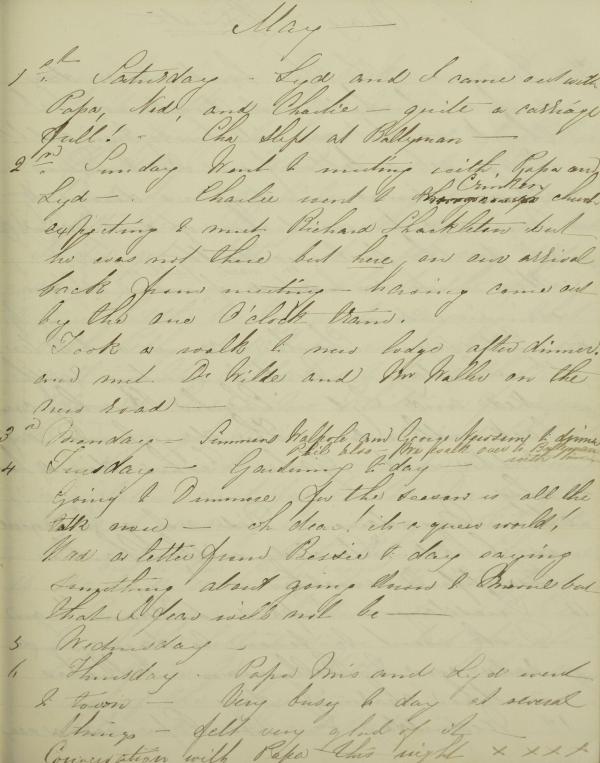 May —
1st Saturday - Lyd and I came out with
Papa, Ned, and Charlie — quite a carriage
full! - Cha slept at Ballyman —
2nd Sunday Went to meeting with Papa and
Lyd — . Charlie went to Crinken church
expecting to meet Richard Shackleton but
he was not there but here, on our arrival
back from meeting — having come out
by the one O'clock train.
Took a walk to new lodge after dinner.
and met Dr Wilde and Wm Waller on the
new road —
3d Monday — Simmons Walpole, and George Newsom to dinner
Phil also - We walk over to Ballyman
with them
4 Tuesday — Gardening to day —
Going to Dunmore for the season is all the
talk now — oh dear! it's a queer world!
Had a letter from Bessie to day saying
something about going down to but
that I fear will not be —
5 Wednesday —
6 Thursday . Papa Mis and Lyd went
to town — Very busy to day at several
things — felt very glad of it
Conversation with Papa this night x x x x